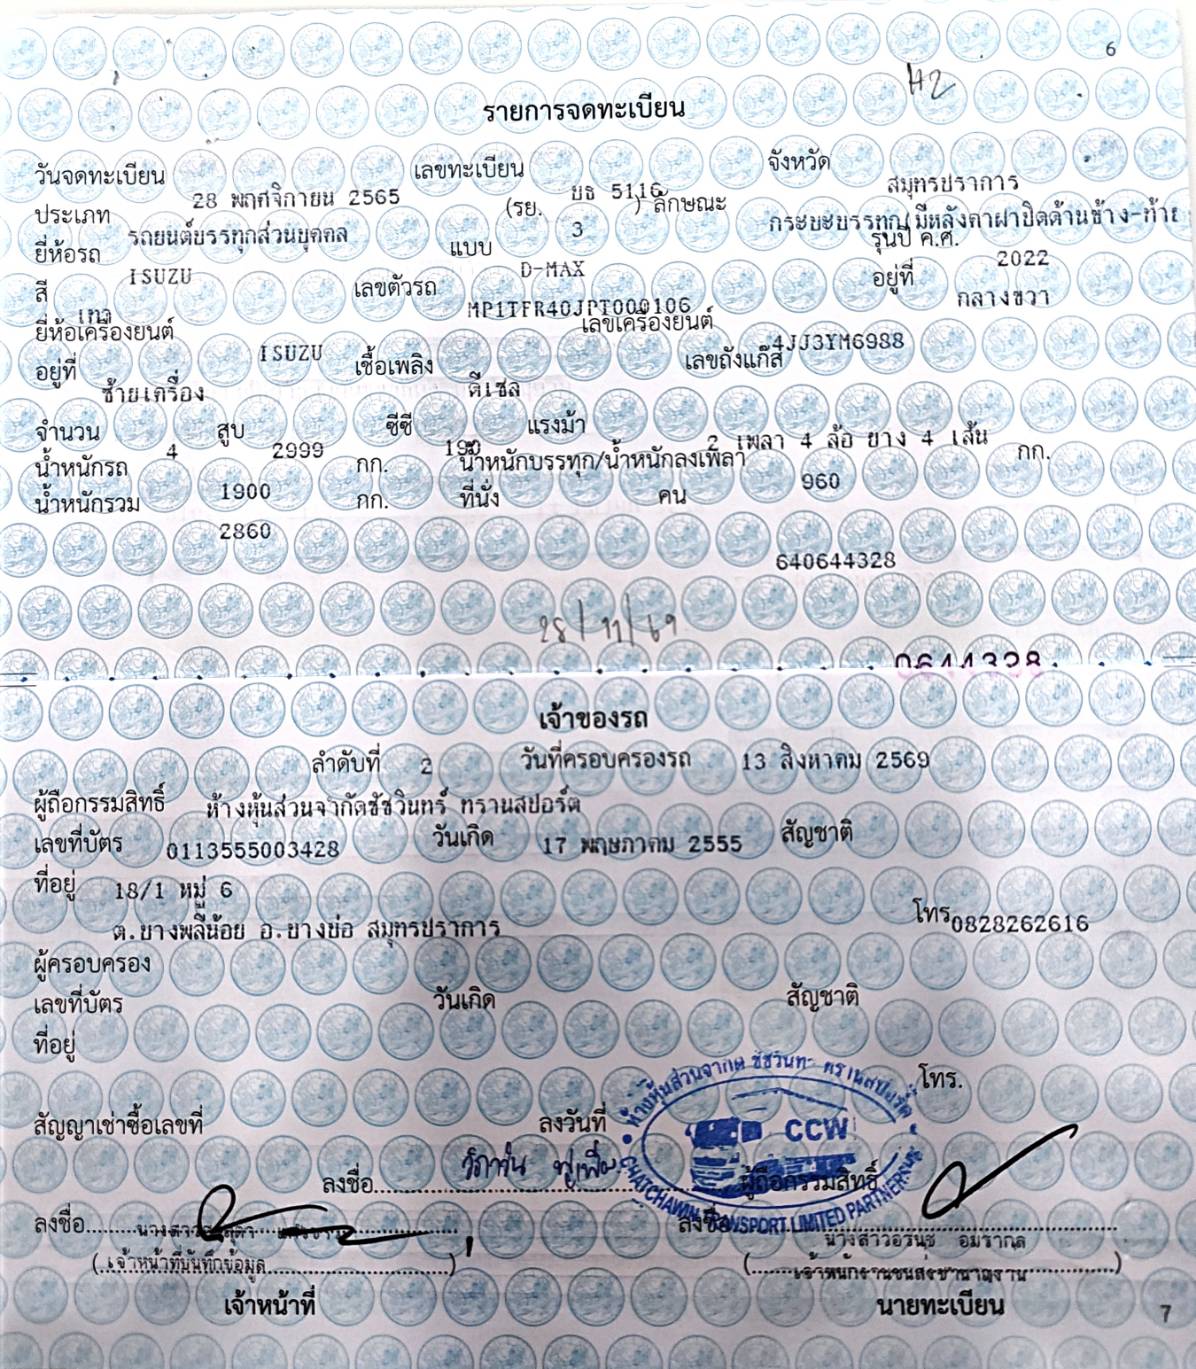 6
H2
รายการจดทะเบียน
วันจดทะเบียน 28 พฤศจิกายน 2565 เลขทะเบียน ยธ 5116 จังหวัด สมุทรปราการ
ประเภท รถยนต์บรรทุกส่วนบุคคล (รย. 3 ) ลักษณะ กระบะบรรทุก(มีหลังคาฝาปิดด้านข้าง-ท้าย
ยี่ห้อรถ ISUZU แบบ D-MAX รุ่นปี ค.ศ. 2022
สี เทา เลขตัวรถ MP1TFR40JPT000106 อยู่ที่ กลางขวา
ยี่ห้อเครื่องยนต์ ISUZU เลขเครื่องยนต์ 4JJ3YM6988
อยู่ที่ ซ้ายเครื่อง เชื้อเพลิง ดีเซล เลขถังแก๊ส
จำนวน 4 สูบ 2999 ซีซี 190 แรงม้า 2 เพลา 4 ล้อ ยาง 4 เส้น
น้ำหนักรถ 1900 กก. น้ำหนักบรรทุก/น้ำหนักลงเพลา 960 กก.
น้ำหนักรวม 2860 กก. ที่นั่ง คน
640644328
28/11/69
0644328
เจ้าของรถ
ลำดับที่ 2 วันที่ครอบครองรถ 13 สิงหาคม 2569
ผู้ถือกรรมสิทธิ์ ห้างหุ้นส่วนจำกัดชัชวินทร์ ทรานสปอร์ต
เลขที่บัตร 0113555003428 วันเกิด 17 พฤษภาคม 2555 สัญชาติ
ที่อยู่ 18/1 หมู่ 6
ต.บางพลีน้อย อ.บางบ่อ สมุทรปราการ โทร 0828262616
ผู้ครอบครอง
เลขที่บัตร วันเกิด สัญชาติ
ที่อยู่
โทร.
ห้างหุ้นส่วนจำกัด ชัชวินทร์ ทรานสปอร์ต
CCW
CHATCHAWIN TRANSPORT LIMITED PARTNERSHIP
สัญญาเช่าซื้อเลขที่ ลงวันที่
ลงชื่อ ผู้ถือกรรมสิทธิ์
ลงชื่อ นางสาว ลงชื่อ นางสาวอรนุช อมรากุล
(เจ้าหน้าที่บันทึกข้อมูล) (เจ้าพนักงานขนส่งชำนาญงาน)
เจ้าหน้าที่ นายทะเบียน
7